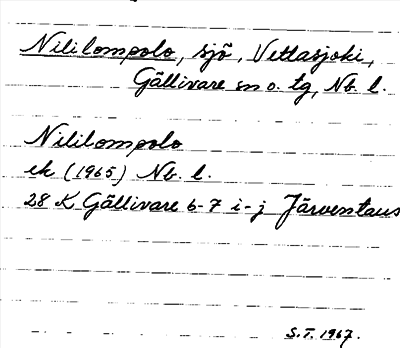 Nililompolo, sjö, Vettasjoki,
Gällivare sn o. tg, Nb. l.
Nililompolo
ek (1965) Nb. l.
28 K Gällivare 6-7 i-j Järvenstaus
S.T. 1967.